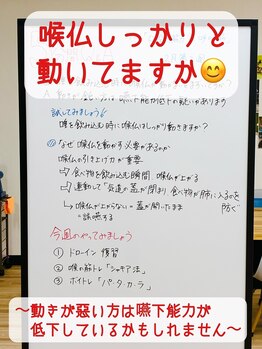 喉仏しっかりと
動いてますか😊
A. 動きが悪い方は嚥下能力低下の疑いがあります
試してみましょう!
唾を飲み込む時に喉仏はしっかり動きますか?
なぜ喉仏を動かす必要があるのか
喉仏の引き上げ力が重要
→食べ物を飲み込む瞬間 喉仏が上がる
→連動して「気道の蓋が閉まり 食べ物が肺に入るのを防ぐ
→喉仏が上がらない=蓋が開いたまま
=誤嚥する
今週のやってみましょう
① ドローイン 復習
② 喉の筋トレ「シャキア法」
③ ボイトレ「パ・タ・カ・ラ」
〜動きが惡い方は嚥下能力が
低下しているかもしれません〜